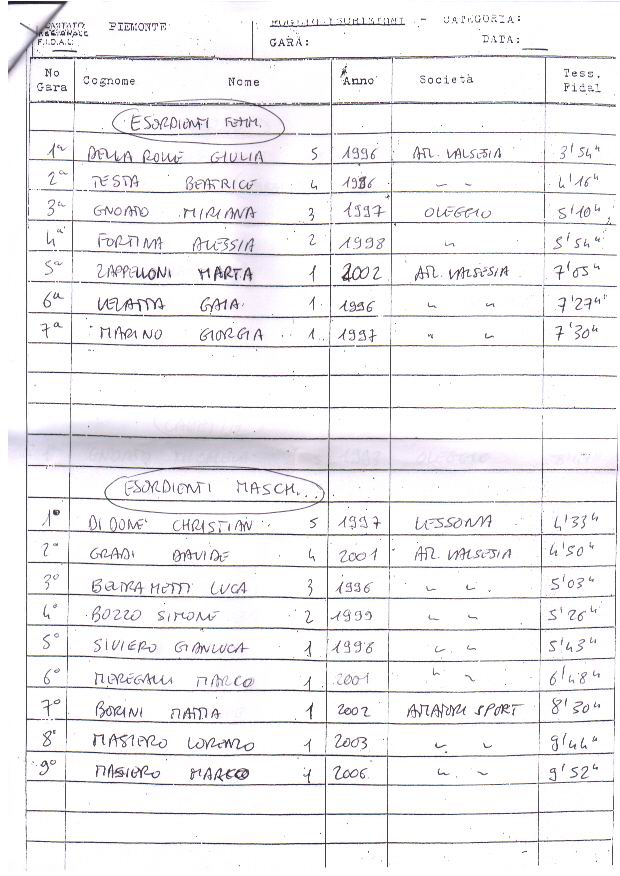 COMITATO REGIONALE F.I.D.A.L. PIEMONTE MODULO ISCRIZIONI - CATEGORIA:
GARA: DATA:
No Gara Cognome Nome Anno Società Tess. Fidal
ESORDIENTI FEMM.
1ª DELLA ROLLE GIULIA 5 1996 ATL. VALSESIA 3'54"
2ª TESTA BEATRICE 4 1996 " " 4'16"
3ª GNOATO MIRIANA 3 1997 OLEGGIO 5'10"
4ª FORTINA ALESSIA 2 1998 " 5'54"
5ª ZAPPELLONI MARTA 1 2002 ATL. VALSESIA 7'05"
6ª VELATTA GAIA 1 1996 " " 7'27"
7ª MARINO GIORGIA 1 1997 " " 7'30"
ESORDIENTI MASCH...
1° DI DONE' CHRISTIAN 5 1997 LESSONA 4'33"
2° GRADI DAVIDE 4 2001 ATL. VALSESIA 4'50"
3° BELTRAMETTI LUCA 3 1996 " " 5'03"
4° BOZZO SIMONE 2 1999 " " 5'26"
5° SIVIERO GIANLUCA 1 1996 " " 5'43"
6° MEREGALLI MARCO 1 2001 " " 6'48"
7° BORINI MATTIA 1 2002 AMATORI SPORT 8'30"
8° MASIERO LORENZO 1 2003 " " 9'44"
9° MASIERO MARCO 1 2006 " " 9'52"